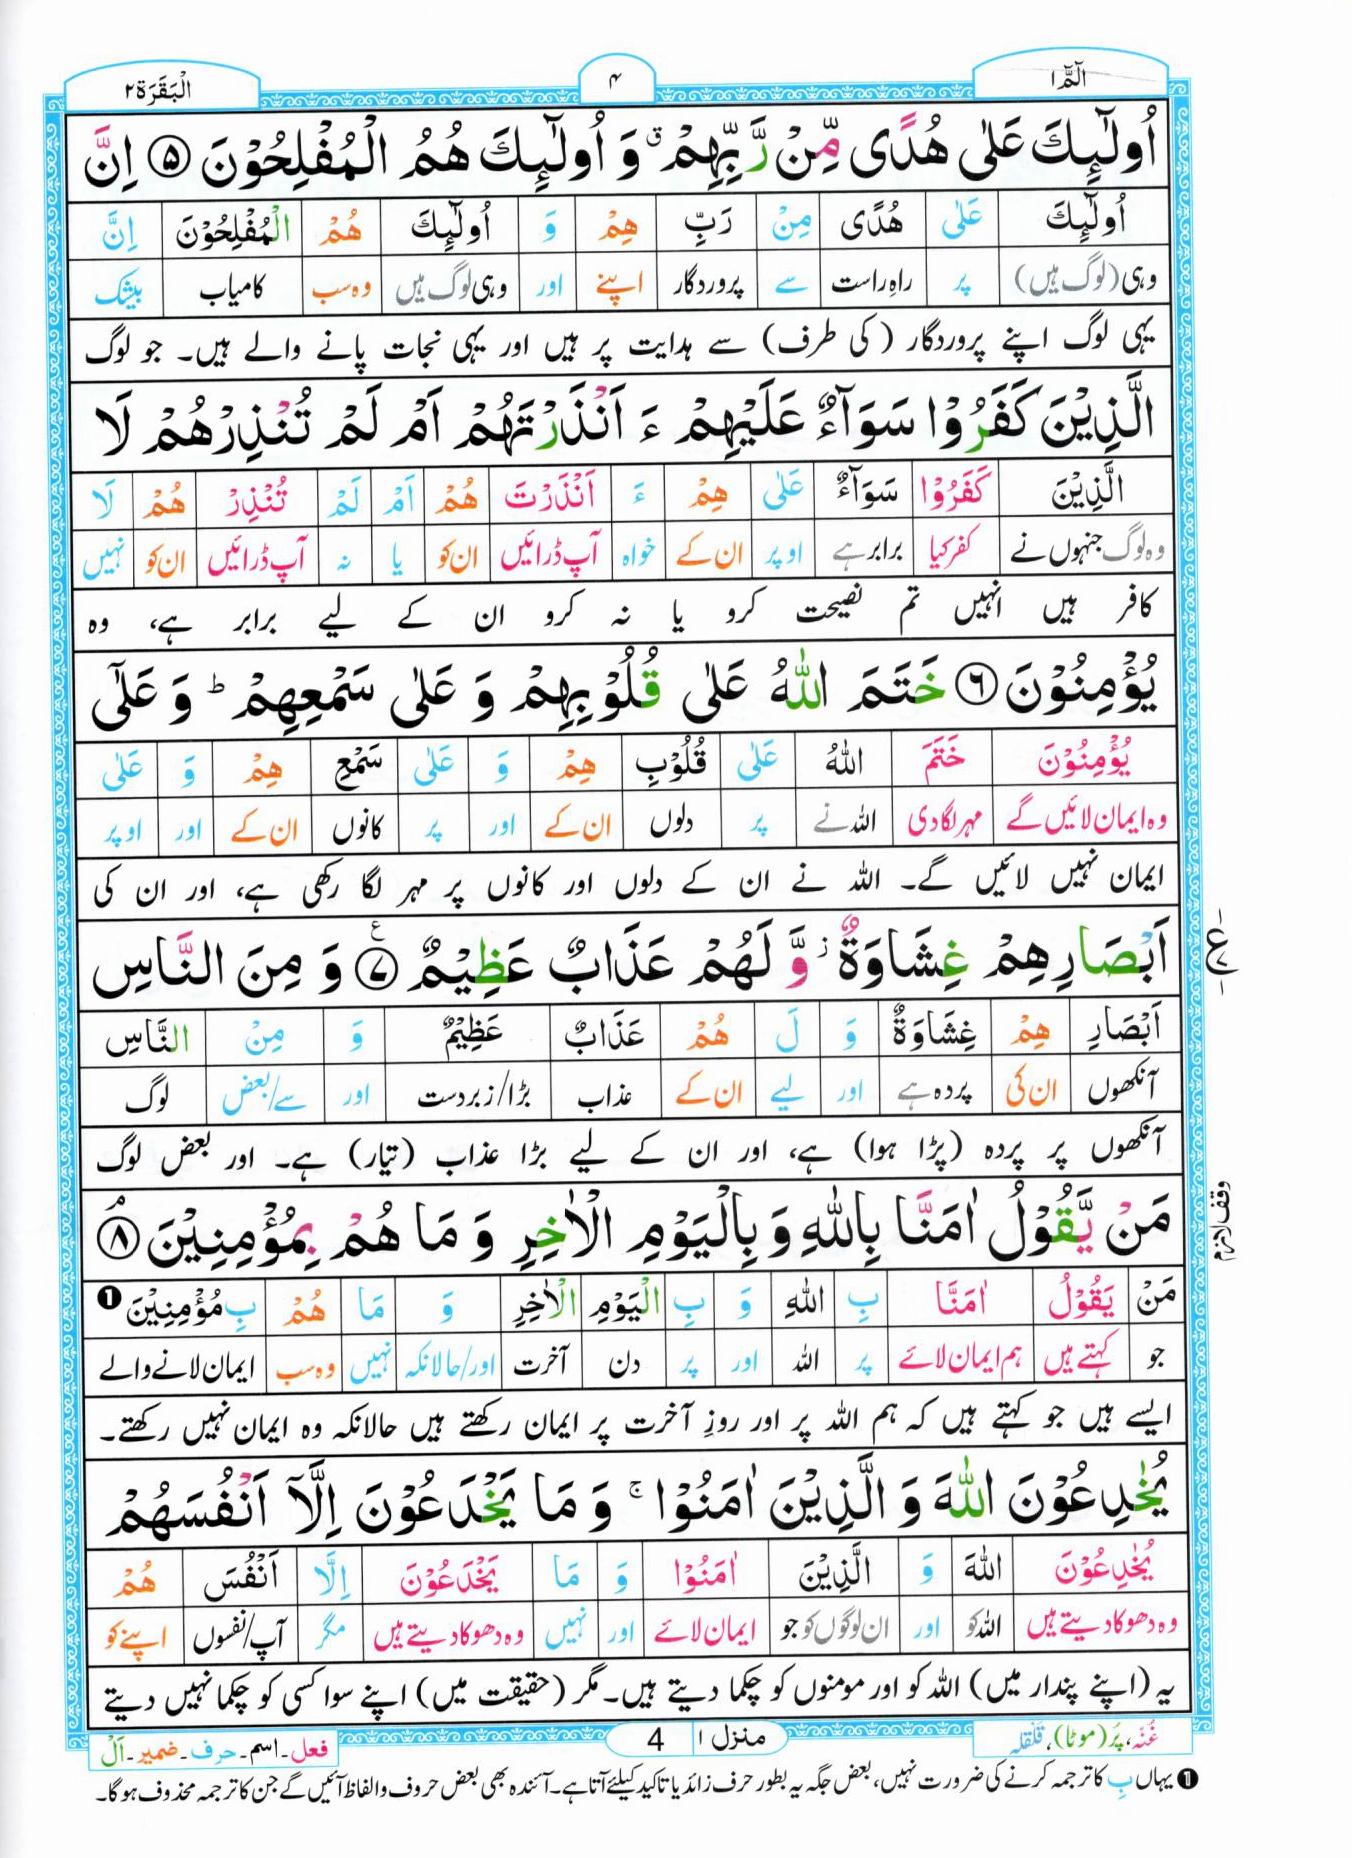 الٓمّٓ ١
۴
اَلْبَقَرَة ٢
اُولٰٓئِكَ عَلٰى هُدًى مِّنْ رَّبِّهِمْ ۗ وَ اُولٰٓئِكَ هُمُ الْمُفْلِحُوْنَ ۝۵ اِنَّ
اُولٰٓئِكَ عَلٰى هُدًى مِنْ رَبِّ هِمْ وَ اُولٰٓئِكَ هُمُ الْمُفْلِحُوْنَ اِنَّ
وہی (لوگ ہیں) پر راہِ راست سے پروردگار اپنے اور وہی لوگ ہیں وہ سب کامیاب بیشک
یہی لوگ اپنے پروردگار (کی طرف) سے ہدایت پر ہیں اور یہی نجات پانے والے ہیں۔ جو لوگ
الَّذِيْنَ كَفَرُوْا سَوَآءٌ عَلَيْهِمْ ءَ اَنْذَرْتَهُمْ اَمْ لَمْ تُنْذِرْهُمْ لَا
الَّذِيْنَ كَفَرُوْا سَوَآءٌ عَلٰى هِمْ ءَ اَنْذَرْتَ هُمْ اَمْ لَمْ تُنْذِرْ هُمْ لَا
وہ لوگ جنہوں نے کفر کیا برابر ہے اوپر ان کے خواہ آپ ڈرائیں ان کو یا نہ آپ ڈرائیں ان کو نہیں
کافر ہیں انہیں تم نصیحت کرو یا نہ کرو ان کے لیے برابر ہے، وہ
يُؤْمِنُوْنَ ۝۶ خَتَمَ اللّٰهُ عَلٰى قُلُوْبِهِمْ وَ عَلٰى سَمْعِهِمْ ؕ وَ عَلٰٓى
يُؤْمِنُوْنَ خَتَمَ اللّٰهُ عَلٰى قُلُوْبِ هِمْ وَ عَلٰى سَمْعِ هِمْ وَ عَلٰى
وہ ایمان لائیں گے مہر لگا دی اللہ نے پر دلوں ان کے اور پر کانوں ان کے اور اوپر
ایمان نہیں لائیں گے۔ اللہ نے ان کے دلوں اور کانوں پر مہر لگا رکھی ہے، اور ان کی
اَبْصَارِهِمْ غِشَاوَةٌ ؗ وَّ لَهُمْ عَذَابٌ عَظِيْمٌ ۝۷ۧ وَ مِنَ النَّاسِ
اَبْصَارِ هِمْ غِشَاوَةٌ وَ لَ هُمْ عَذَابٌ عَظِيْمٌ وَ مِنْ النَّاسِ
آنکھوں ان کی پردہ ہے اور لیے ان کے عذاب بڑا/زبردست اور سے/بعض لوگ
آنکھوں پر پردہ (پڑا ہوا) ہے، اور ان کے لیے بڑا عذاب (تیار) ہے۔ اور بعض لوگ
مَنْ يَّقُوْلُ اٰمَنَّا بِاللّٰهِ وَ بِالْيَوْمِ الْاٰخِرِ وَ مَا هُمْ بِمُؤْمِنِيْنَ ۝۸ۘ
مَنْ يَقُوْلُ اٰمَنَّا بِ اللّٰهِ وَ بِ الْيَوْمِ الْاٰخِرِ وَ مَا هُمْ بِمُؤْمِنِيْنَ ❶
جو کہتے ہیں ہم ایمان لائے پر اللہ اور پر دن آخرت اور/حالانکہ نہیں وہ سب ایمان لانے والے
ایسے ہیں جو کہتے ہیں کہ ہم اللہ پر اور روزِ آخرت پر ایمان رکھتے ہیں حالانکہ وہ ایمان نہیں رکھتے۔
يُخٰدِعُوْنَ اللّٰهَ وَ الَّذِيْنَ اٰمَنُوْا ۚ وَ مَا يَخْدَعُوْنَ اِلَّآ اَنْفُسَهُمْ
يُخٰدِعُوْنَ اللّٰهَ وَ الَّذِيْنَ اٰمَنُوْا وَ مَا يَخْدَعُوْنَ اِلَّا اَنْفُسَ هُمْ
وہ دھوکا دیتے ہیں اللہ کو اور ان لوگوں کو جو ایمان لائے اور نہیں وہ دھوکا دیتے ہیں مگر آپ/نفسوں اپنے کو
یہ (اپنے پندار میں) اللہ کو اور مومنوں کو چکما دیتے ہیں۔ مگر (حقیقت میں) اپنے سوا کسی کو چکما نہیں دیتے
ع ۷
وقف لازم
غُنّہ، پُر (موٹا)، قلقلہ
منزل ۱
4
فعل۔ اسم۔ حرف۔ ضمیر۔ اَلْ
❶ یہاں بِ کا ترجمہ کرنے کی ضرورت نہیں، بعض جگہ یہ بطور حرف زائد یا تاکید کیلئے آتا ہے۔ آئندہ بھی بعض حروف والفاظ آئیں گے جن کا ترجمہ محذوف ہو گا۔